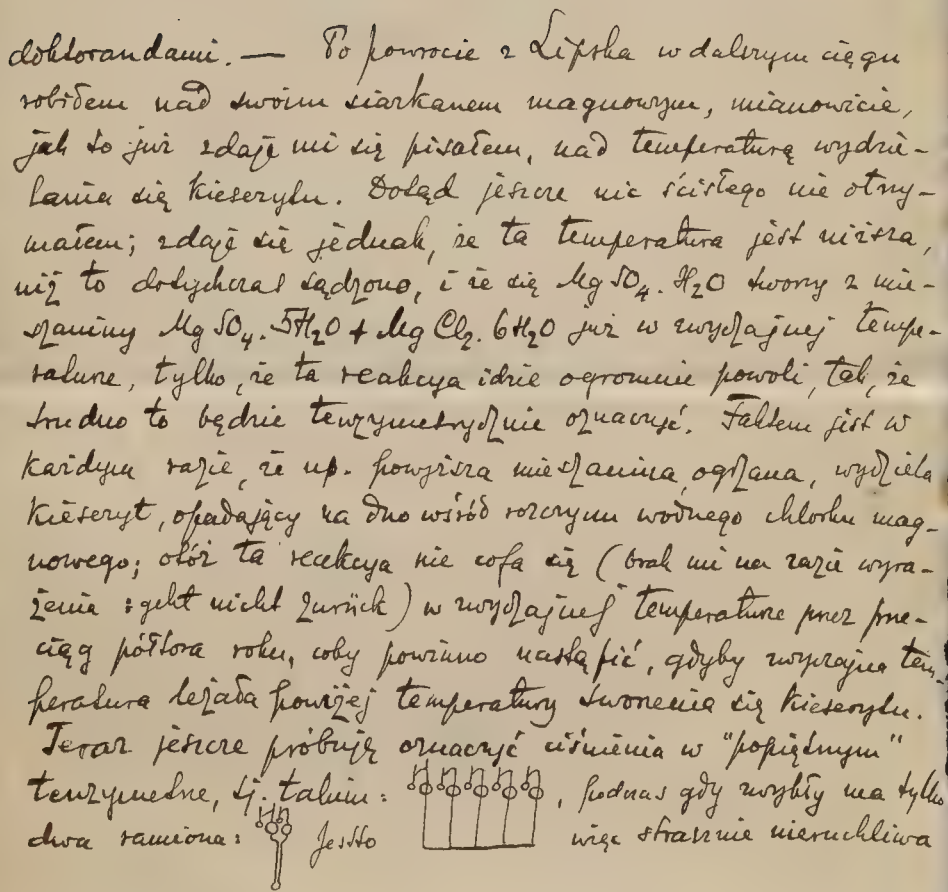 doktorandami. — Po powrocie z Lipska w dalszym ciągu
robiłem nad swoim siarkanem magnowym, mianowicie,
jak to już zdaje mi się pisałem, nad temperaturą wydzie-
lania się Kieserytu. Dotąd jeszcze nic ścisłego nie otrzy-
małem; zdaje się jednak, że ta temperatura jest niższa,
niż to dotychczas sądzono, i że się MgSO₄.H₂O tworzy z mie-
szaniny MgSO₄.5H₂O + MgCl₂.6H₂O już w zwyczajnej tempe-
raturze, tylko, że ta reakcya idzie ogromnie powoli, tak, że
trudno to będzie tenzymetrycznie oznaczyć. Faktem jest w
każdym razie, że np. powyższa mieszanina, ogrzana, wydziela
Kieseryt, opadający na dno wśród rozczynu wodnego chlorku mag-
nowego; otóż ta reakcya nie cofa się (brak mi na razie wyra-
żenia: geht nicht zurück) w zwyczajnej temperaturze przez prze-
ciąg półtora roku, coby powinno nastąpić, gdyby zwyczajna tem-
peratura leżała poniżej temperatury tworzenia się Kieserytu.
Teraz jeszcze próbuję oznaczyć ciśnienia w "popiętnym"
tenzymetrze, tj. takim: , podczas gdy zwykły ma tylko
dwa ramiona: Jestto więc strasznie nieruchliwa